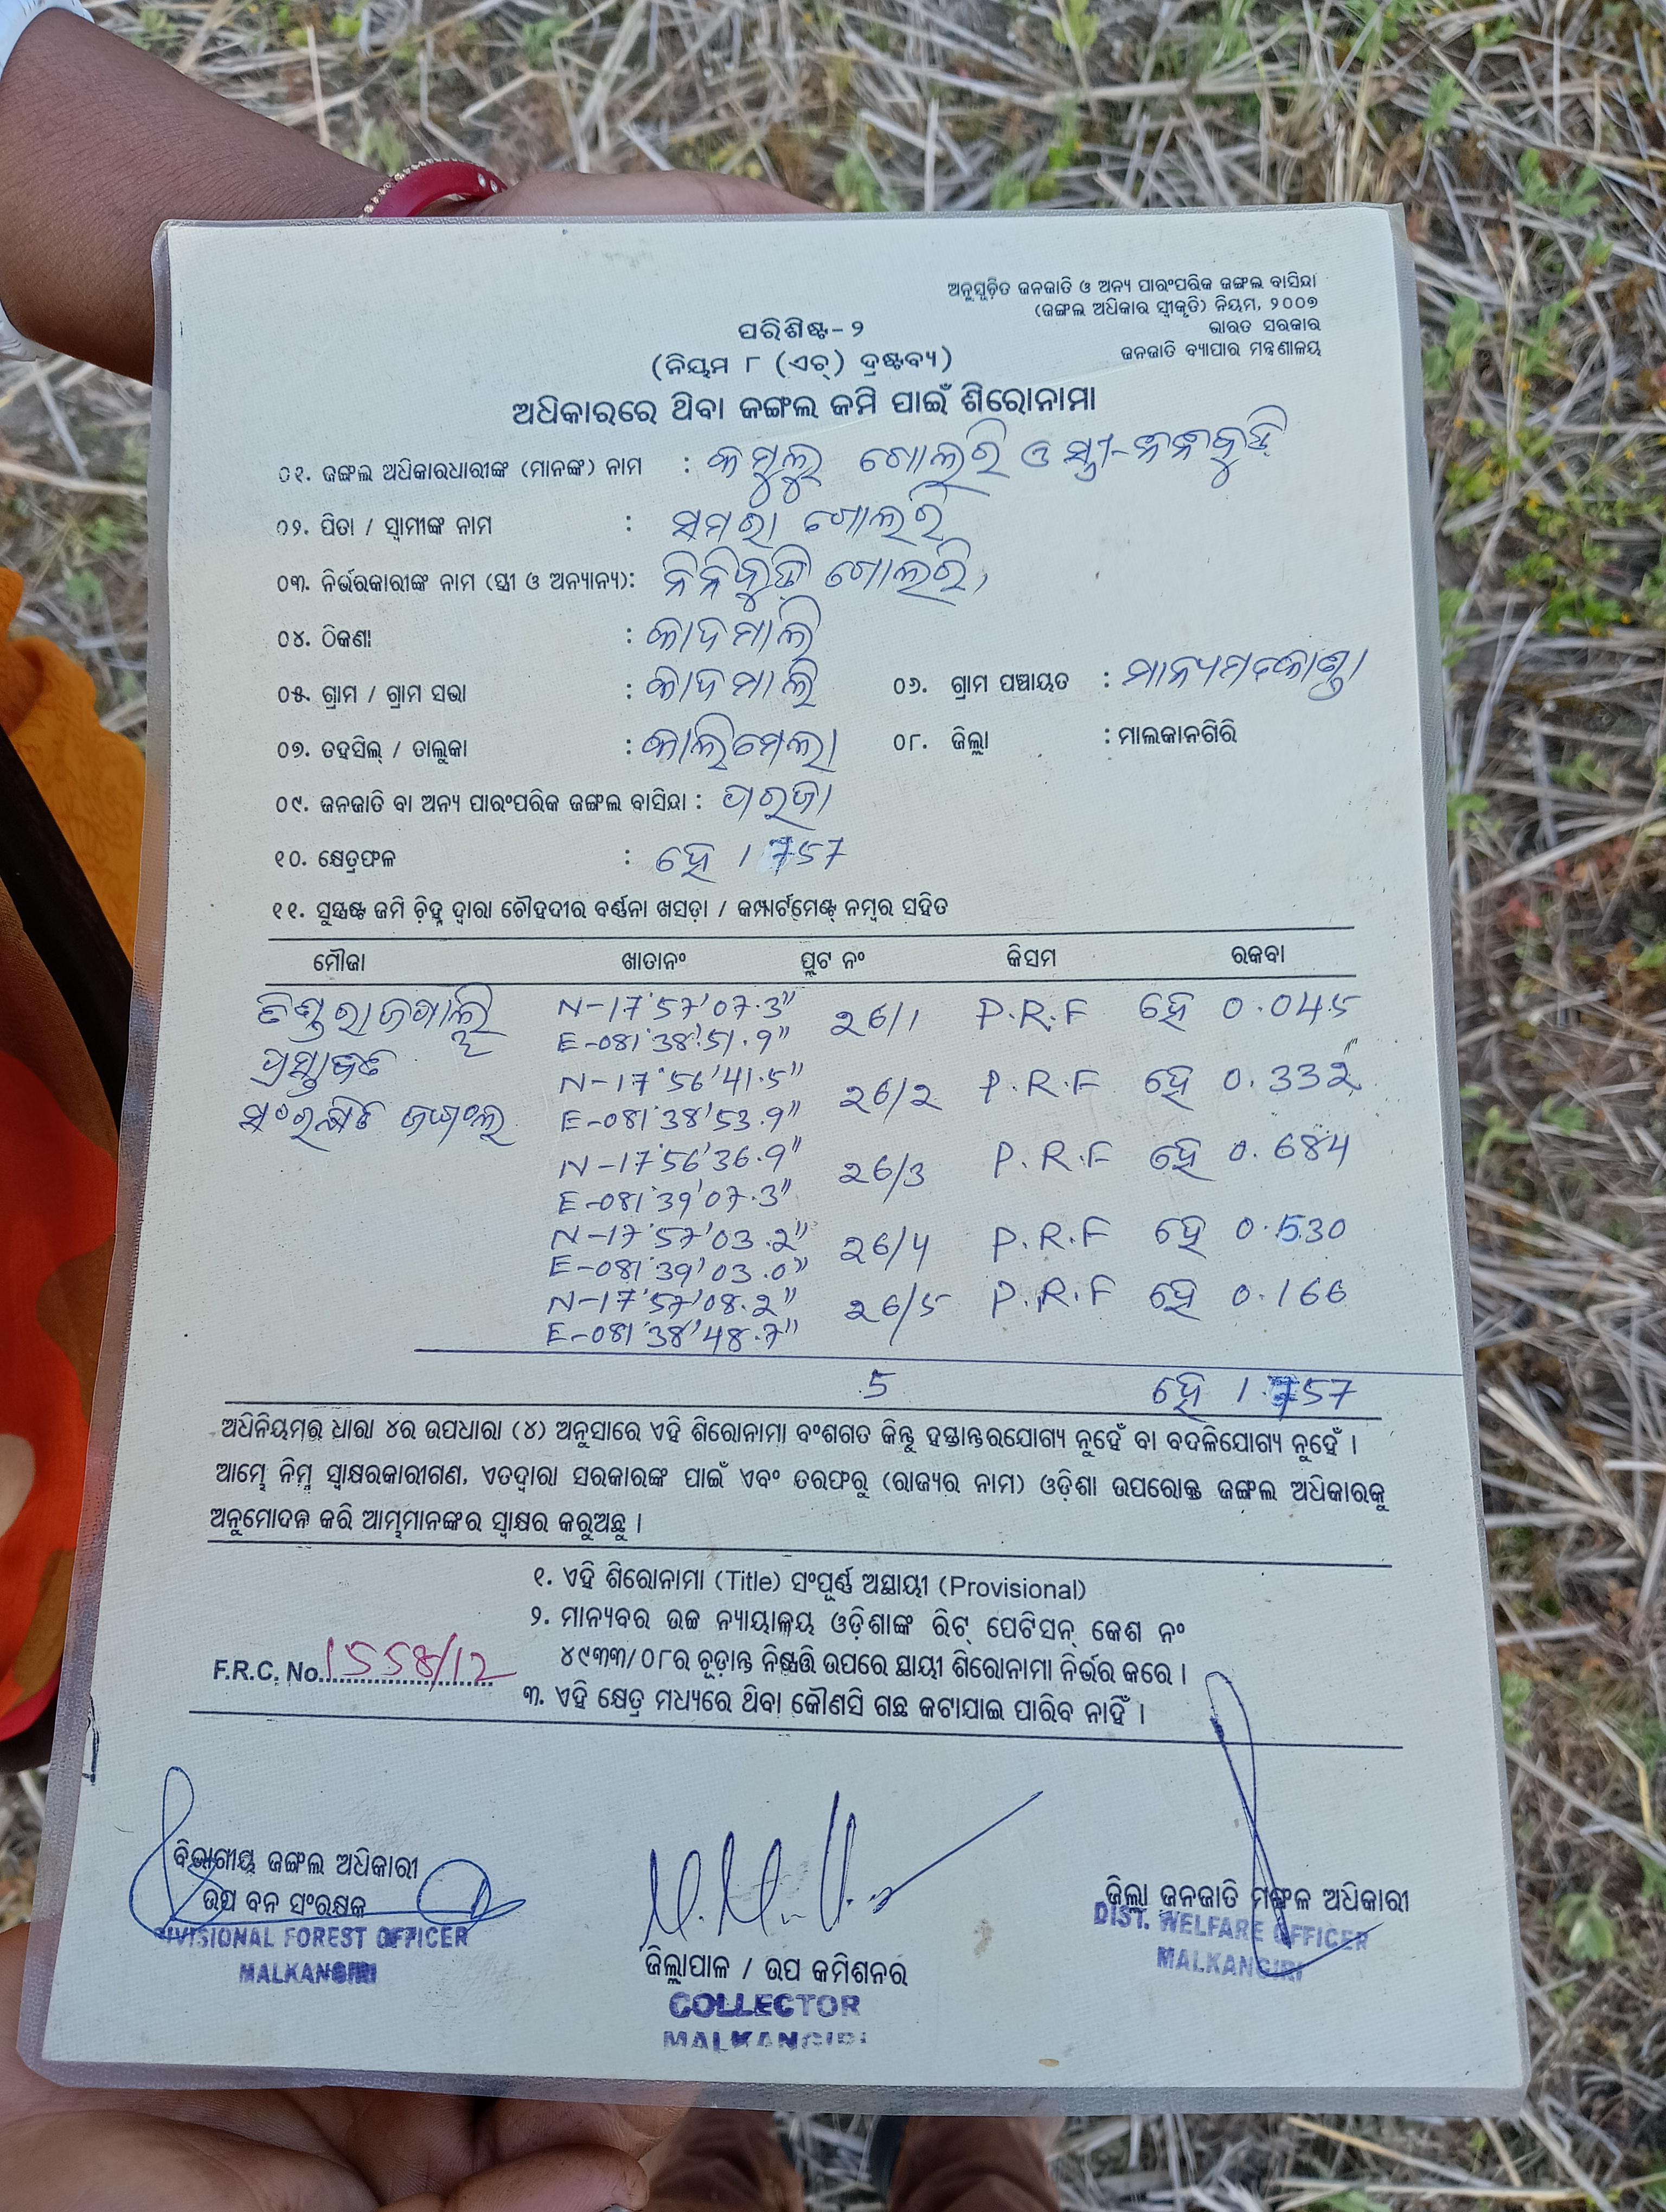 ଅନୁସୂଚିତ ଜନଜାତି ଓ ଅନ୍ୟ ପାରଂପରିକ ଜଙ୍ଗଲ ବାସିନ୍ଦା
(ଜଙ୍ଗଲ ଅଧିକାର ସ୍ୱୀକୃତି) ନିୟମ, ୨୦୦୭
ଭାରତ ସରକାର
ଜନଜାତି ବ୍ୟାପାର ମନ୍ତ୍ରଣାଳୟ
ପରିଶିଷ୍ଟ-୨
(ନିୟମ ୮ (ଏଚ୍) ଦ୍ରଷ୍ଟବ୍ୟ)
ଅଧିକାରରେ ଥିବା ଜଙ୍ଗଲ ଜମି ପାଇଁ ଶିରୋନାମା
୦୧. ଜଙ୍ଗଲ ଅଧିକାରଧାରୀଙ୍କ (ମାନଙ୍କ) ନାମ : ଗୋଲରି ଓ ସ୍ତ୍ରୀ-
୦୨. ପିତା / ସ୍ୱାମୀଙ୍କ ନାମ : ସମରା ଗୋଲରି
୦୩. ନିର୍ଭରକାରୀଙ୍କ ନାମ (ସ୍ତ୍ରୀ ଓ ଅନ୍ୟାନ୍ୟ): ଗୋଲରି,
୦୪. ଠିକଣା : କାଦମାଲି
୦୫. ଗ୍ରାମ / ଗ୍ରାମ ସଭା : କାଦମାଲି ୦୬. ଗ୍ରାମ ପଞ୍ଚାୟତ : ମାନ୍ୟମକୋଣ୍ଡା
୦୭. ତହସିଲ୍ / ତାଲୁକା : କାଲିମେଲା ୦୮. ଜିଲ୍ଲା : ମାଲକାନଗିରି
୦୯. ଜନଜାତି ବା ଅନ୍ୟ ପାରଂପରିକ ଜଙ୍ଗଲ ବାସିନ୍ଦା : ପରଜା
୧୦. କ୍ଷେତ୍ରଫଳ : ହେ 1.757
୧୧. ସୁସ୍ପଷ୍ଟ ଜମି ଚିହ୍ନ ଦ୍ୱାରା ଚୌହଦୀର ବର୍ଣ୍ଣନା ଖସଡ଼ା / କମ୍ପାର୍ଟମେଣ୍ଟ୍ ନମ୍ବର ସହିତ
ମୌଜା ଖାତାନଂ ପ୍ଲଟ ନଂ କିସମ ରକବା
N-17°57'07.3" 26/1 P.R.F ହେ 0.045
E-081°38'51.9"
ପ୍ରସ୍ତାବିତ N-17°56'41.5" 26/2 P.R.F ହେ 0.332
ସଂରକ୍ଷିତ ଜଙ୍ଗଲ E-081°38'53.9"
N-17°56'36.9" 26/3 P.R.F ହେ 0.684
E-081°39'07.3"
N-17°57'03.2" 26/4 P.R.F ହେ 0.530
E-081°39'03.0"
N-17°57'08.2" 26/5 P.R.F ହେ 0.166
E-081°38'48.7"
5 ହେ 1.757
ଅଧିନିୟମର ଧାରା ୪ର ଉପଧାରା (୪) ଅନୁସାରେ ଏହି ଶିରୋନାମା ବଂଶଗତ କିନ୍ତୁ ହସ୍ତାନ୍ତରଯୋଗ୍ୟ ନୁହେଁ ବା ବଦଳିଯୋଗ୍ୟ ନୁହେଁ ।
ଆମ୍ଭେ ନିମ୍ନ ସ୍ୱାକ୍ଷରକାରୀଗଣ, ଏତଦ୍ୱାରା ସରକାରଙ୍କ ପାଇଁ ଏବଂ ତରଫରୁ (ରାଜ୍ୟର ନାମ) ଓଡ଼ିଶା ଉପରୋକ୍ତ ଜଙ୍ଗଲ ଅଧିକାରକୁ
ଅନୁମୋଦନ କରି ଆମ୍ଭମାନଙ୍କର ସ୍ୱାକ୍ଷର କରୁଅଛୁ ।
୧. ଏହି ଶିରୋନାମା (Title) ସଂପୂର୍ଣ୍ଣ ଅସ୍ଥାୟୀ (Provisional)
୨. ମାନ୍ୟବର ଉଚ୍ଚ ନ୍ୟାୟାଳୟ ଓଡ଼ିଶାଙ୍କ ରିଟ୍ ପେଟିସନ୍ କେଶ ନଂ
୪୯୩୩/୦୮ର ଚୂଡ଼ାନ୍ତ ନିଷ୍ପତ୍ତି ଉପରେ ସ୍ଥାୟୀ ଶିରୋନାମା ନିର୍ଭର କରେ ।
F.R.C. No. 1558/12
୩. ଏହି କ୍ଷେତ୍ର ମଧ୍ୟରେ ଥିବା କୌଣସି ଗଛ କଟାଯାଇ ପାରିବ ନାହିଁ ।
ବିଭାଗୀୟ ଜଙ୍ଗଲ ଅଧିକାରୀ
ଉପ ବନ ସଂରକ୍ଷକ
DIVISIONAL FOREST OFFICER
MALKANGIRI
ଜିଲ୍ଲାପାଳ / ଉପ କମିଶନର
COLLECTOR
MALKANGIRI
ଜିଲ୍ଲା ଜନଜାତି ମଙ୍ଗଳ ଅଧିକାରୀ
DIST. WELFARE OFFICER
MALKANGIRI